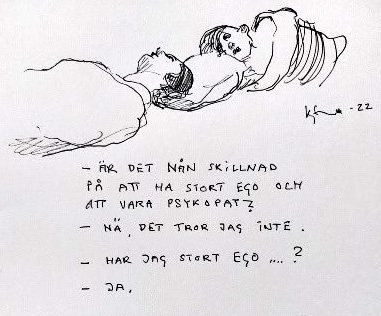 -22
- ÄR DET NÅN SKILLNAD
PÅ ATT HA STORT EGO OCH
ATT VARA PSYKOPAT?
- NÄ, DET TROR JAG INTE.
- HAR JAG STORT EGO ....?
- JA.